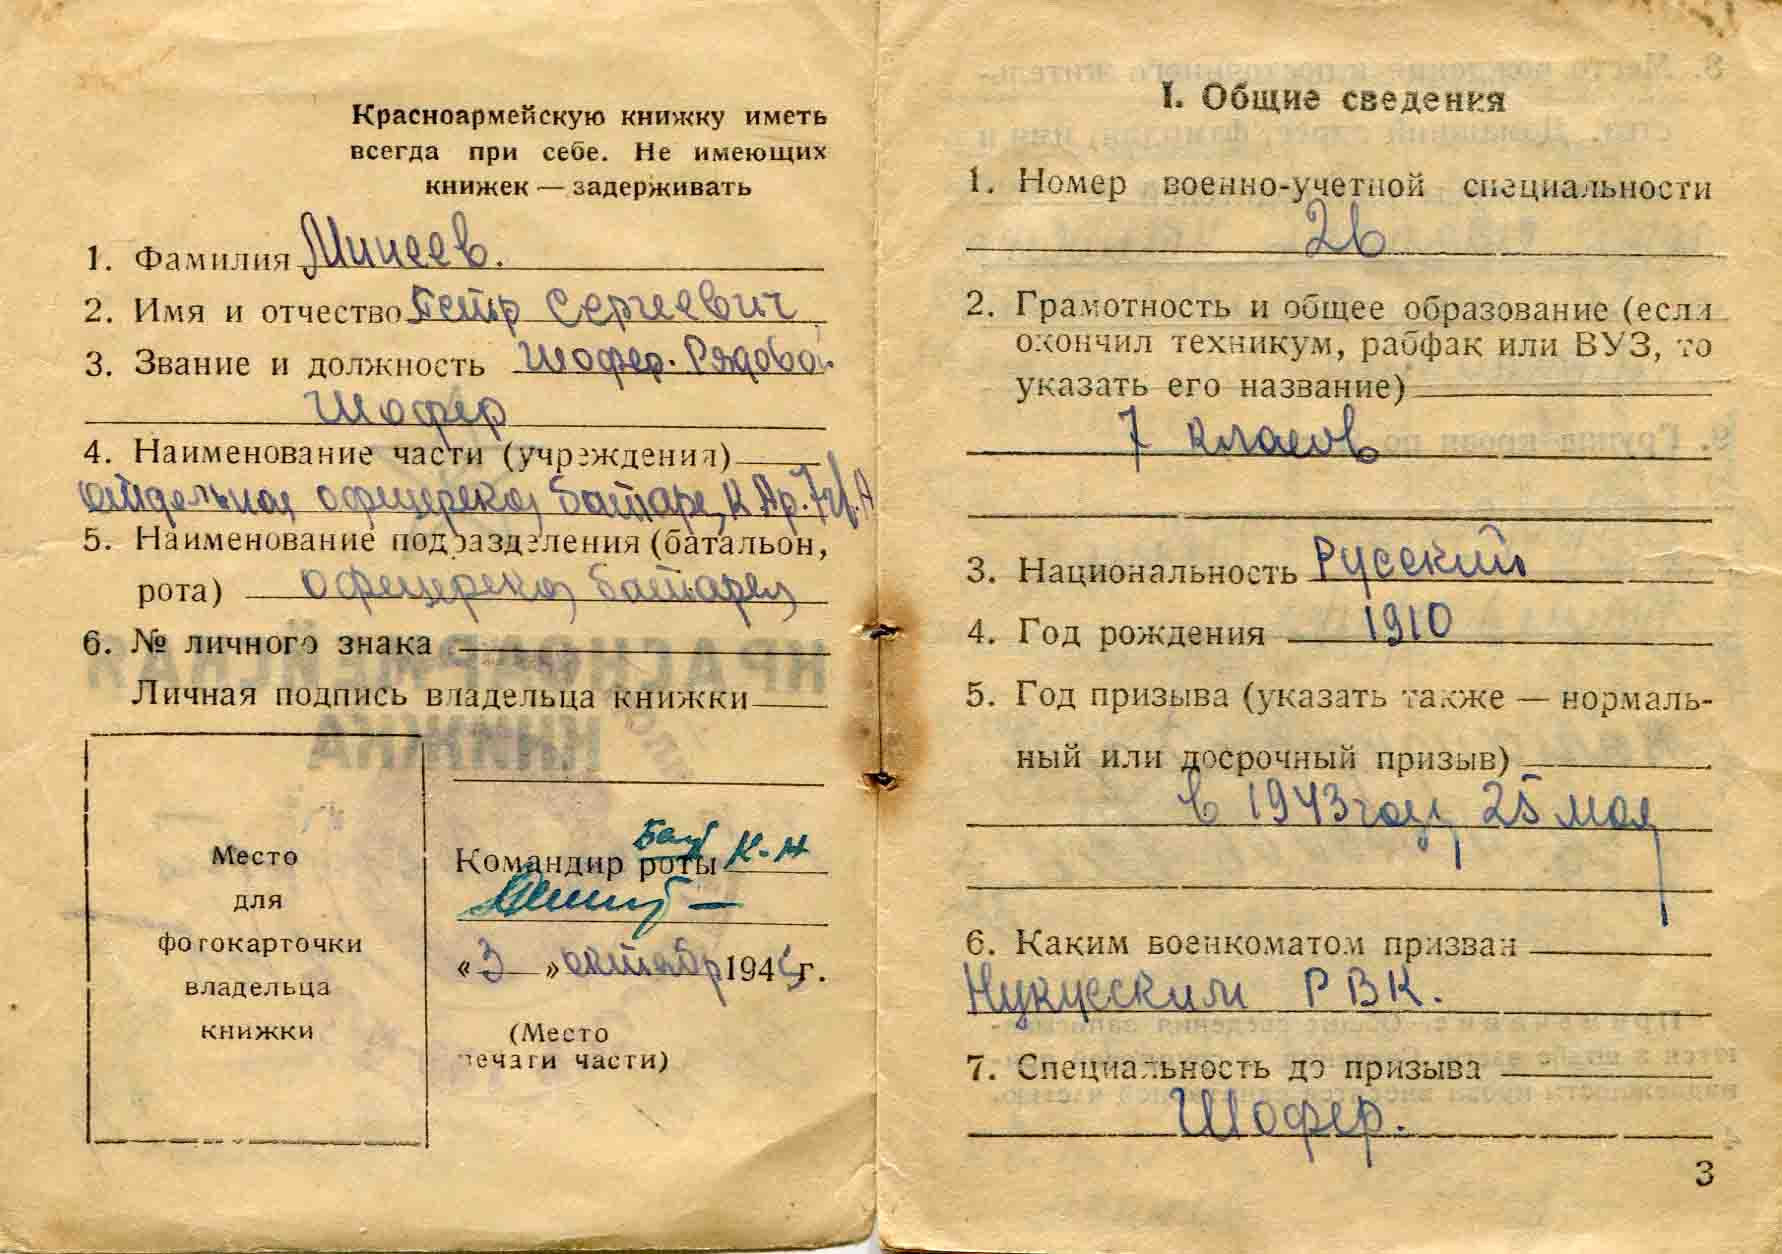 Красноармейскую книжку иметь
всегда при себе. Не имеющих
книжек — задерживать
1. Фамилия Минеев.
2. Имя и отчество Петр Сергеевич
3. Звание и должность Шофер. Рядовой
Шофер
4. Наименование части (учреждения)
отдельная офицерская батарея К Ар. 7 гв. А
5. Наименование подразделения (батальон,
рота) офицерская батарея
6. № личного знака
Личная подпись владельца книжки
Место
для
фотокарточки
владельца
книжки
Командир роты К-н
«3» октябр 1945г.
(Место
печати части)
I. Общие сведения
1. Номер военно-учетной специальности
26
2. Грамотность и общее образование (если
окончил техникум, рабфак или ВУЗ, то
указать его название)
7 класов
3. Национальность Русский
4. Год рождения 1910
5. Год призыва (указать также — нормаль-
ный или досрочный призыв)
в 1943 году 25 мая
6. Каким военкоматом призван
Нукусским РВК.
7. Специальность до призыва
Шофер.
3